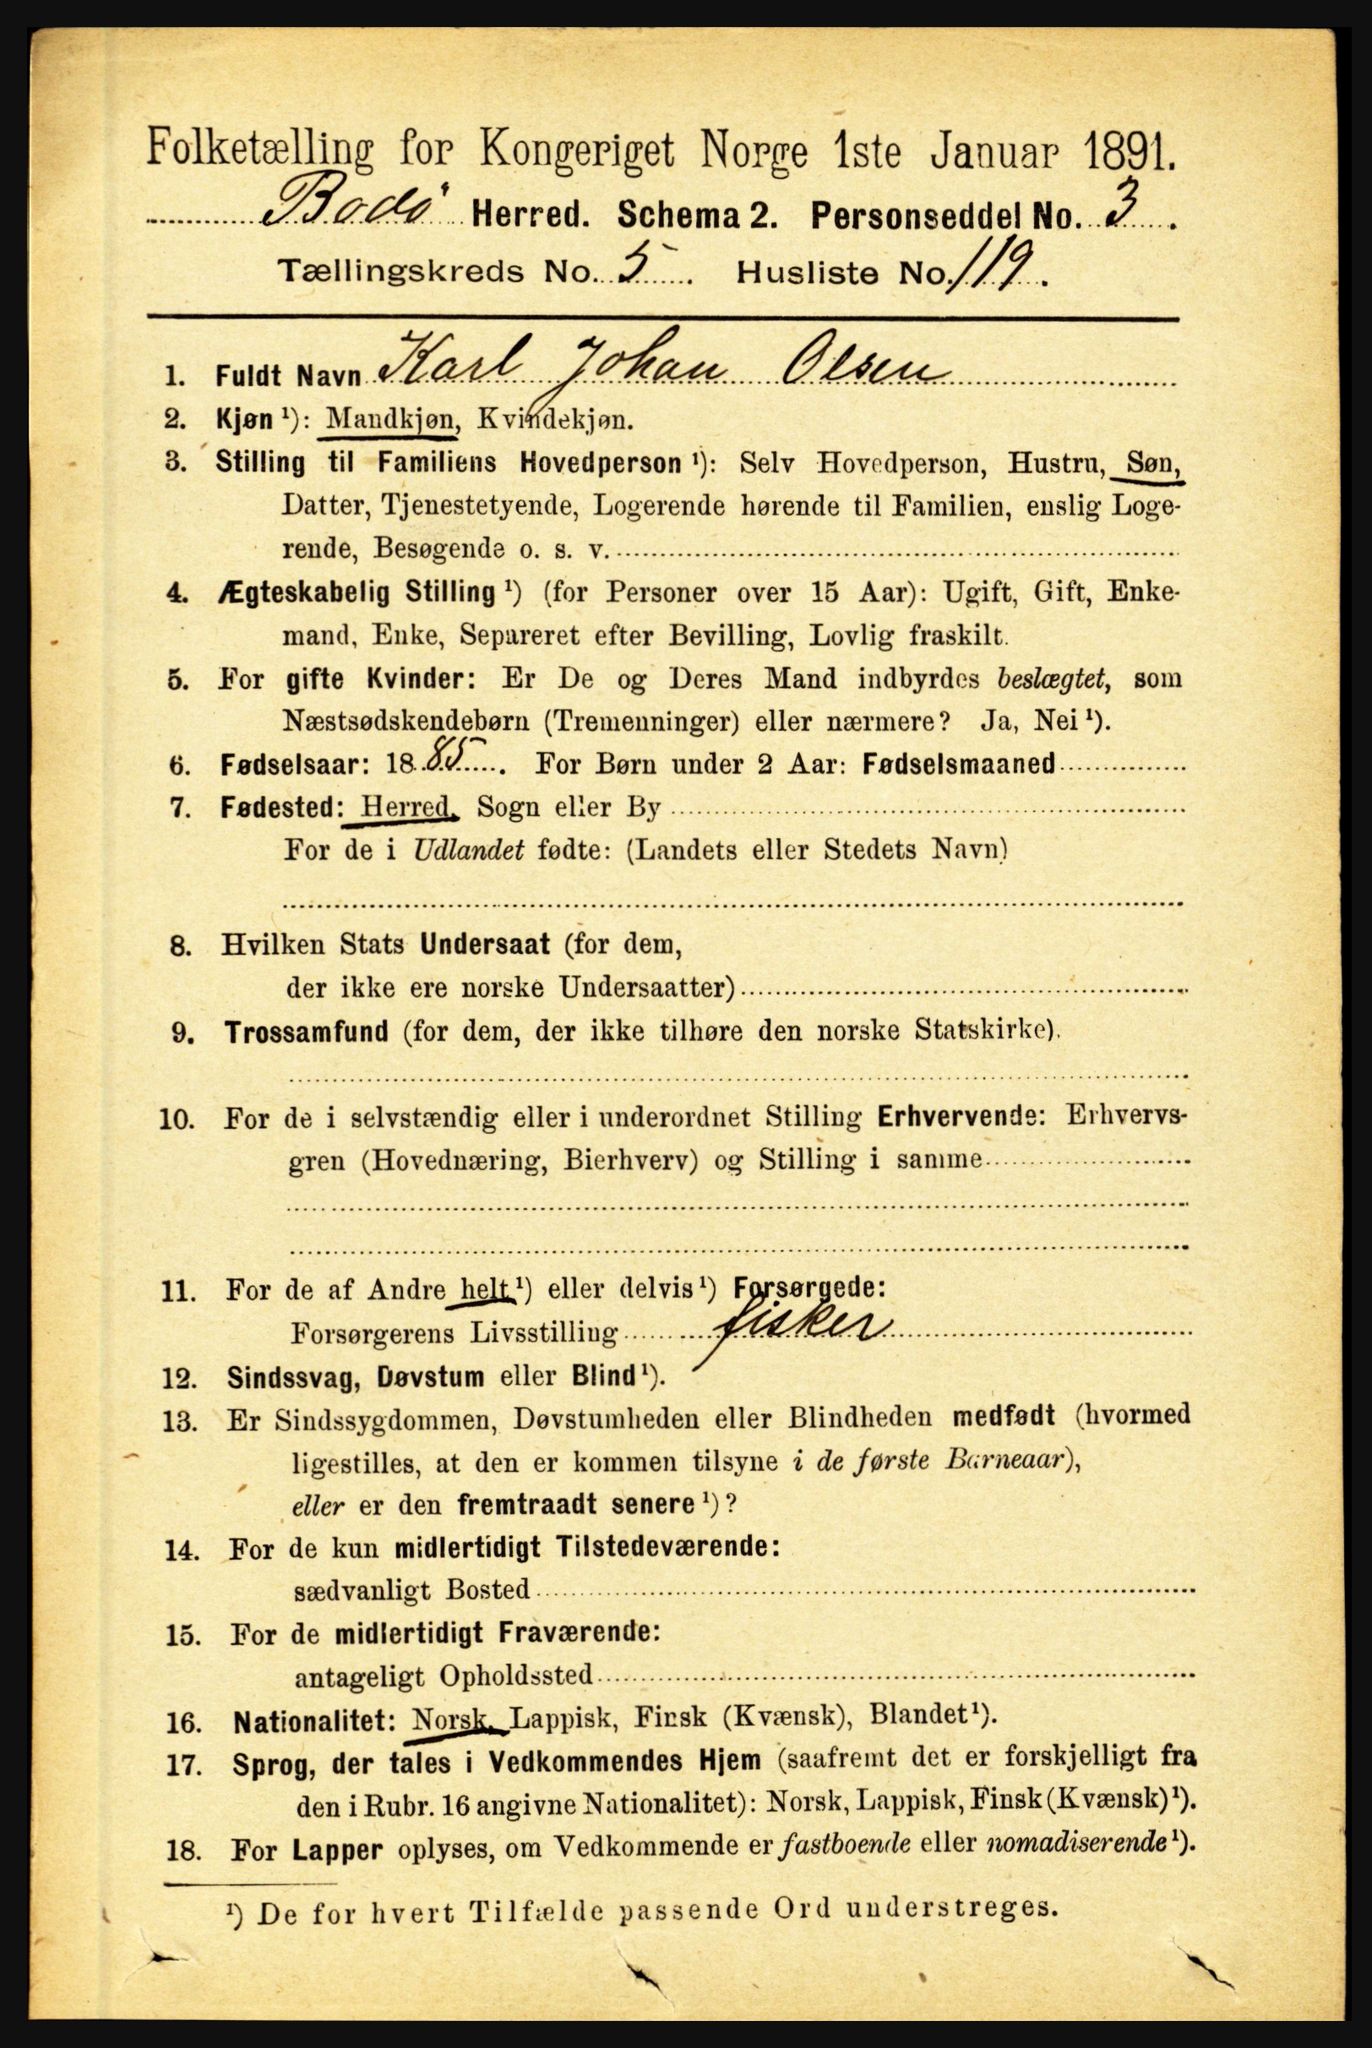 Folketælling for Kongeriget Norge 1ste Januar 1891.
Bodø Herred. Schema 2. Personseddel No. 3.
Tællingskreds No. 5. Husliste No. 119.
1. Fuldt Navn Karl Johan Olsen
2. Kjøn ¹): Mandkjøn, Kvindekjøn.
3. Stilling til Familiens Hovedperson ¹): Selv Hovedperson, Hustru, Søn,
Datter, Tjenestetyende, Logerende hørende til Familien, enslig Loge-
rende, Besøgende o. s. v.
4. Ægteskabelig Stilling ¹) (for Personer over 15 Aar): Ugift, Gift, Enke-
mand, Enke, Separeret efter Bevilling, Lovlig fraskilt.
5. For gifte Kvinder: Er De og Deres Mand indbyrdes beslægtet, som
Næstsødskendebørn (Tremenninger) eller nærmere? Ja, Nei ¹).
6. Fødselsaar: 1885. For Børn under 2 Aar: Fødselsmaaned
7. Fødested: Herred, Sogn eller By
For de i Udlandet fødte: (Landets eller Stedets Navn)
8. Hvilken Stats Undersaat (for dem,
der ikke ere norske Undersaatter)
9. Trossamfund (for dem, der ikke tilhøre den norske Statskirke).
10. For de i selvstændig eller i underordnet Stilling Erhvervende: Erhvervs-
gren (Hovednæring, Bierhverv) og Stilling i samme
11. For de af Andre helt ¹) eller delvis ¹) Forsørgede:
Forsørgerens Livsstilling fisker
12. Sindssvag, Døvstum eller Blind ¹).
13. Er Sindssygdommen, Døvstumheden eller Blindheden medfødt (hvormed
ligestilles, at den er kommen tilsyne i de første Barneaar),
eller er den fremtraadt senere ¹)?
14. For de kun midlertidigt Tilstedeværende:
sædvanligt Bosted
15. For de midlertidigt Fraværende:
antageligt Opholdssted
16. Nationalitet: Norsk, Lappisk, Finsk (Kvænsk), Blandet ¹).
17. Sprog, der tales i Vedkommendes Hjem (saafremt det er forskjelligt fra
den i Rubr. 16 angivne Nationalitet): Norsk, Lappisk, Finsk (Kvænsk) ¹).
18. For Lapper oplyses, om Vedkommende er fastboende eller nomadiserende ¹).
¹) De for hvert Tilfælde passende Ord understreges.